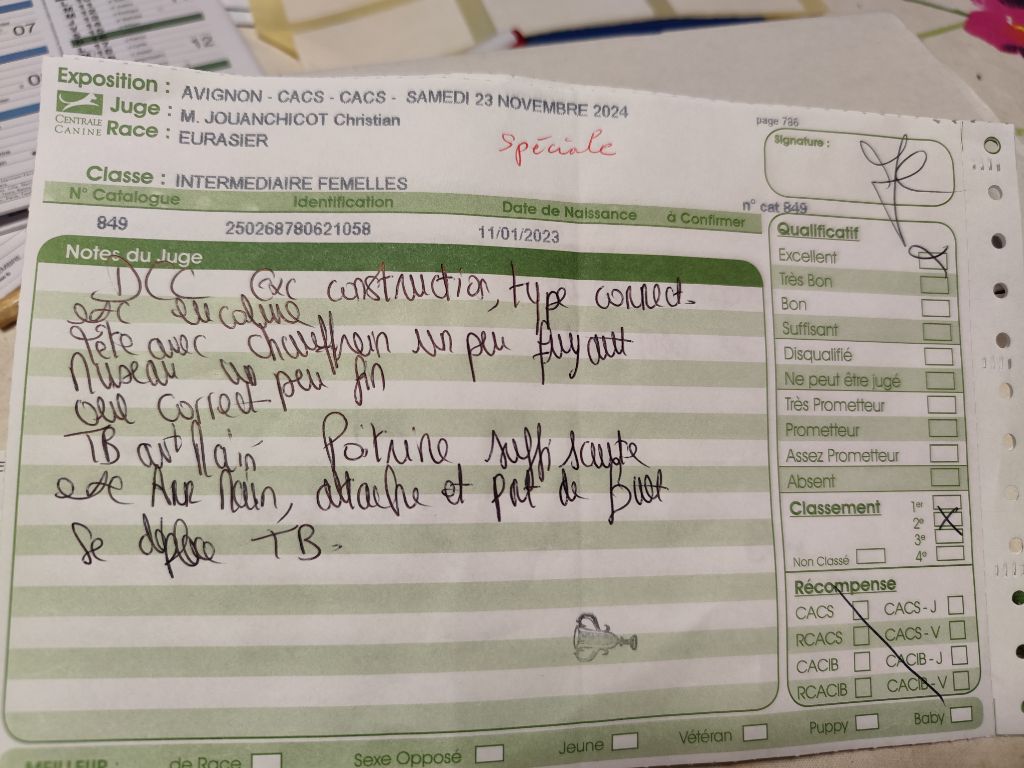 07
12
Exposition : AVIGNON - CACS - CACS - SAMEDI 23 NOVEMBRE 2024
Juge : M. JOUANCHICOT Christian
CENTRALE CANINE
Race : EURASIER
Spéciale
page 786
Signature :
Classe : INTERMEDIAIRE FEMELLES
N° Catalogue Identification Date de Naissance à Confirmer
n° cat 849
849 250268780621058 11/01/2023
Notes du Juge
DCC Exc construction, type correct
exc encolure
Tête avec chanfrein un peu fuyant
Museau un peu fin
correct
TB Poitrine suffisante
exc Arr Main, attache et port de fouet
Se déplace TB.
Qualificatif
Excellent
Très Bon
Bon
Suffisant
Disqualifié
Ne peut être jugé
Très Prometteur
Prometteur
Assez Prometteur
Absent
Classement 1er
2e
3e
Non Classé 4e
Récompense
CACS CACS - J
RCACS CACS - V
CACIB CACIB - J
RCACIB CACIB - V
MEILLEUR : de Race Sexe Opposé Jeune Vétéran Puppy Baby